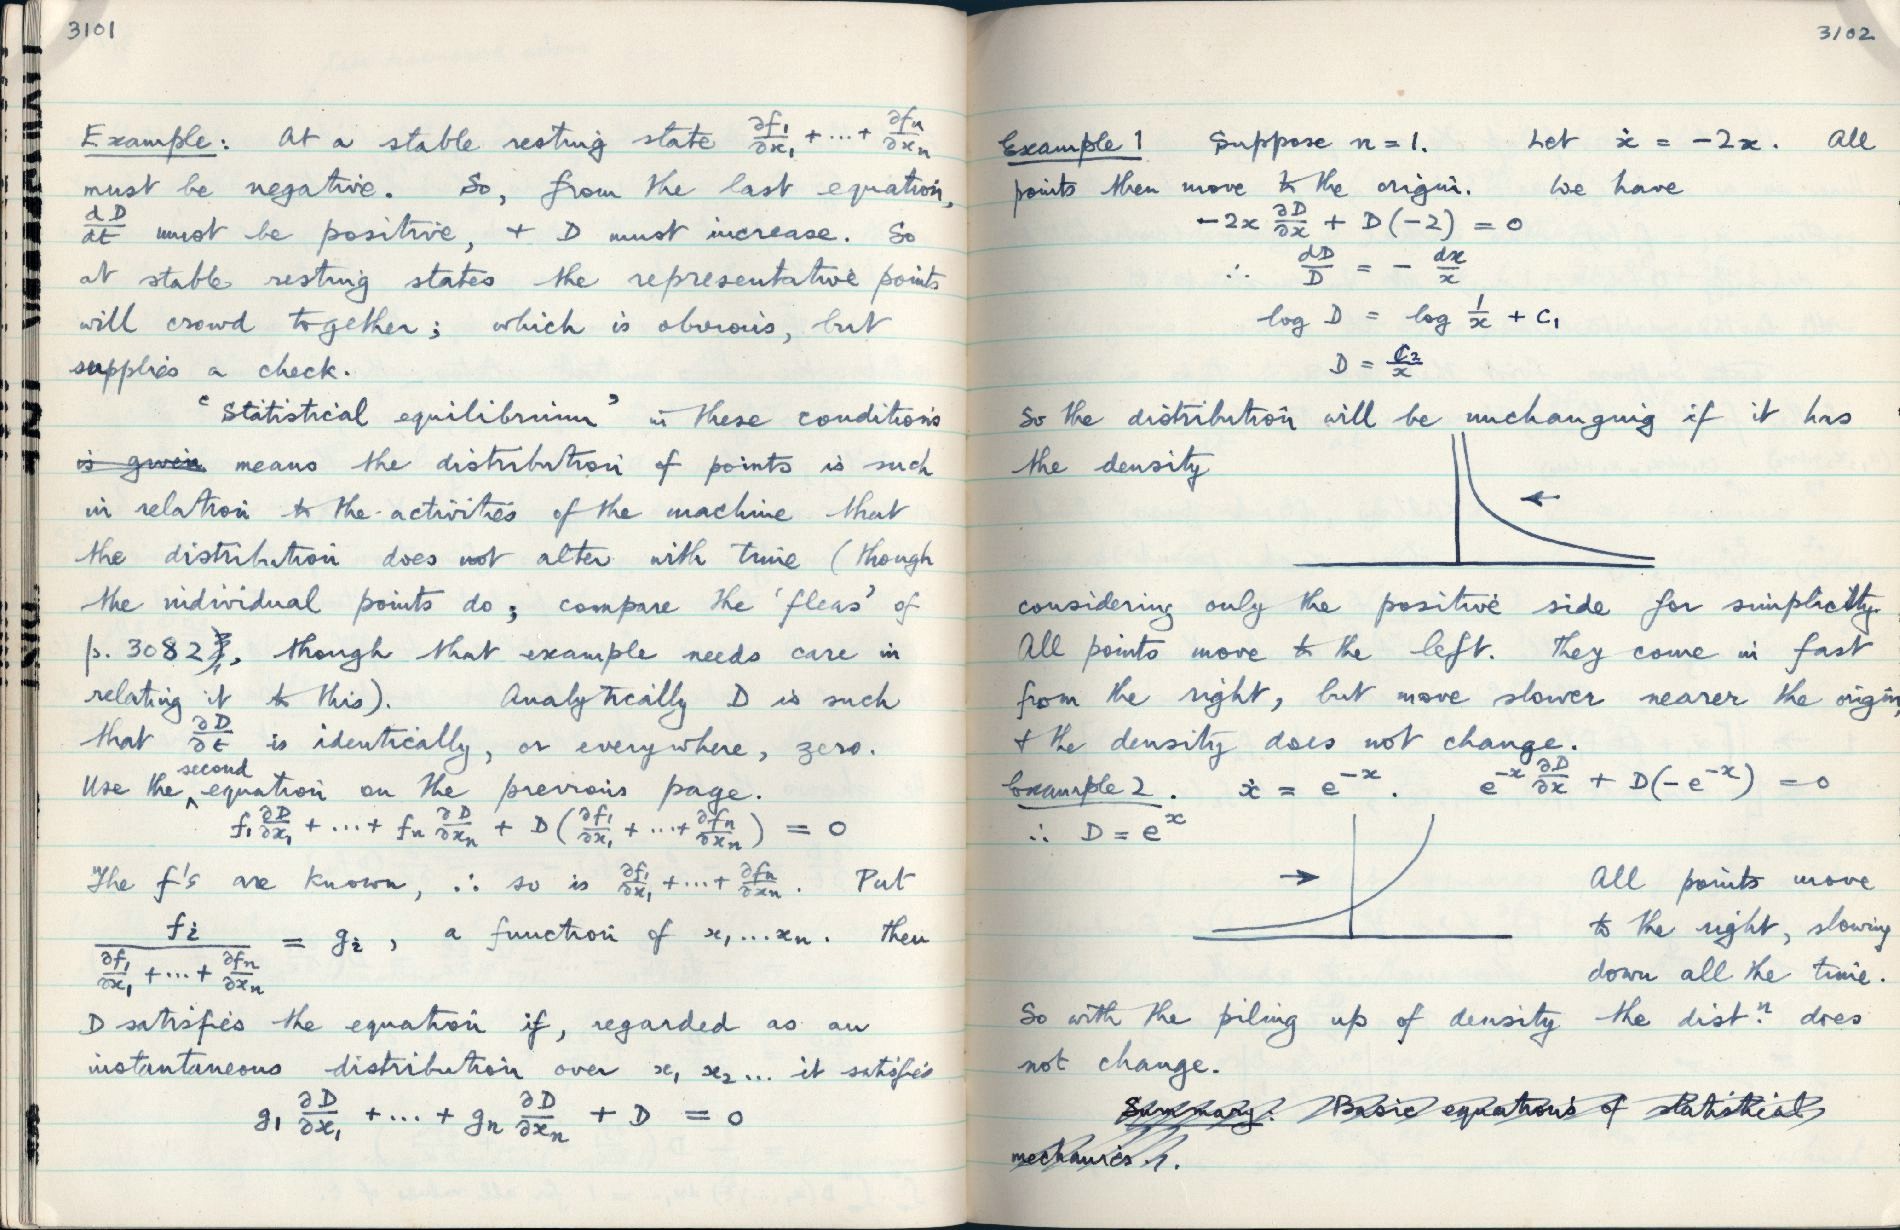 3101
Example: At a stable resting state ∂f₁/∂x₁ + ... + ∂fₙ/∂xₙ
must be negative. So, from the last equation,
dD/dt must be positive, + D must increase. So
at stable resting states the representative points
will crowd together; which is obvious, but
supplies a check.
'Statistical equilibrium' in these conditions
is given means the distribution of points is such
in relation to the activities of the machine that
the distribution does not alter with time (though
the individual points do; compare the 'fleas' of
p. 3082, though that example needs care in
relating it to this). Analytically D is such
that ∂D/∂t is identically, or everywhere, zero.
Use the second equation on the previous page.
f₁ ∂D/∂x₁ + ... + fₙ ∂D/∂xₙ + D(∂f₁/∂x₁ + ... + ∂fₙ/∂xₙ) = 0
The f's are known, ∴ so is ∂f₁/∂x₁ + ... + ∂fₙ/∂xₙ. Put
fᵢ / (∂f₁/∂x₁ + ... + ∂fₙ/∂xₙ) = gᵢ, a function of x₁...xₙ. Then
D satisfies the equation if, regarded as an
instantaneous distribution over x₁ x₂... it satisfies
g₁ ∂D/∂x₁ + ... + gₙ ∂D/∂xₙ + D = 0
3102
Example 1 Suppose n = 1. Let ẋ = -2x. All
points then move to the origin. We have
-2x ∂D/∂x + D(-2) = 0
∴ dD/D = - dx/x
log D = log 1/x + C₁
D = C₂/x
So the distribution will be unchanging if it has
the density
←
considering only the positive side for simplicity.
All points move to the left. They come in fast
from the right, but move slower nearer the origin,
+ the density does not change.
Example 2. ẋ = e⁻ˣ. e⁻ˣ ∂D/∂x + D(-e⁻ˣ) = 0
∴ D = eˣ
→
All points move
to the right, slowing
down all the time.
So with the piling up of density the dist.ⁿ does
not change.
Summary: Basic equations of statistical
mechanics.